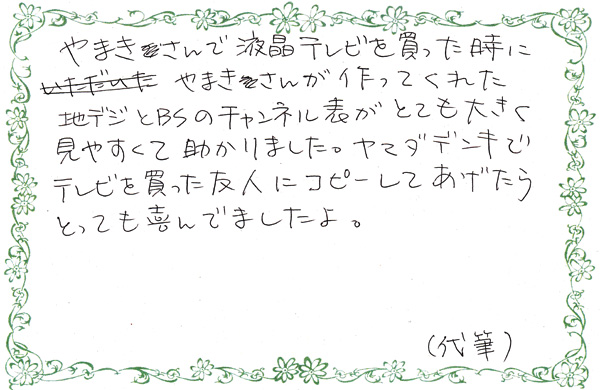 やまきさんで液晶テレビを買った時に
いただいた やまきさんが作ってくれた
地デジとBSのチャンネル表がとても大きく
見やすくて助かりました。ヤマダデンキで
テレビを買った友人にコピーしてあげたら
とっても喜んでましたよ。
(代筆)